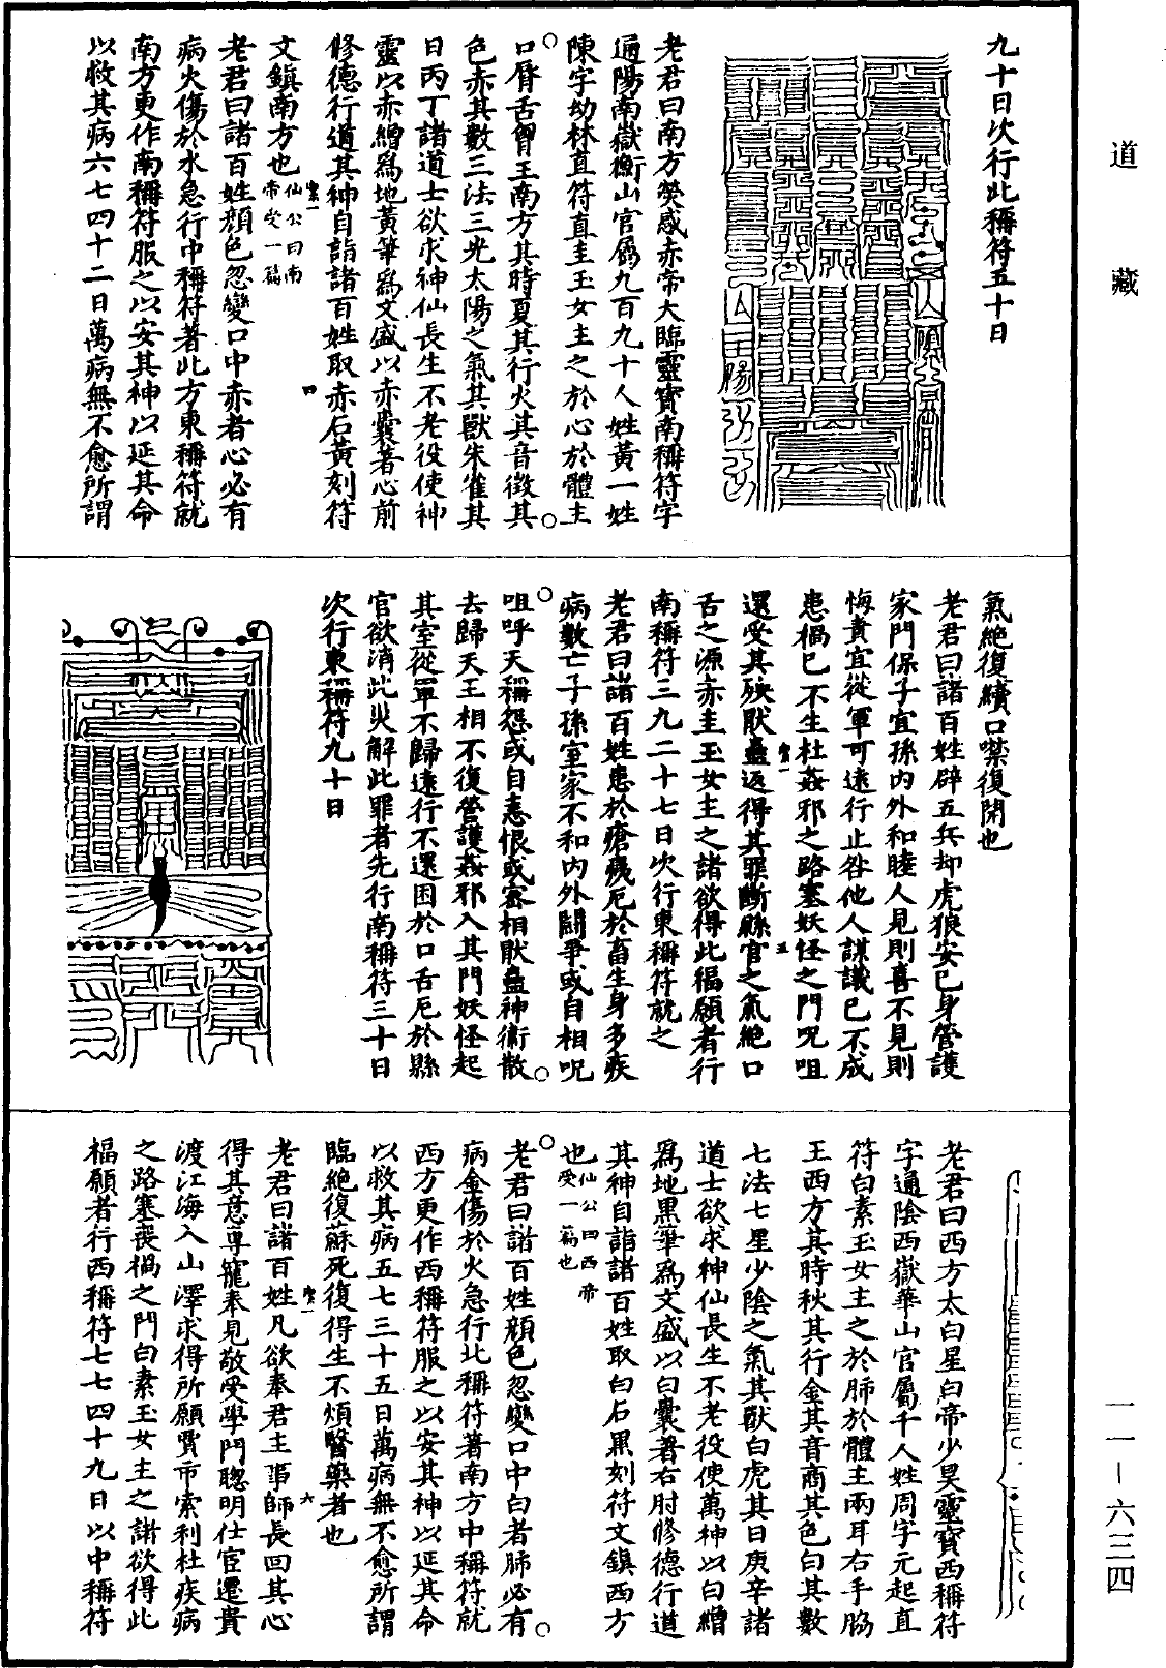 道藏
九十日次行此稱符五十日
老君曰南方熒惑赤帝大臨靈寶南稱符字
通陽南嶽衡山官屬九百九十人姓黃一姓
陳字幼林直符直圭玉女主之於心於體主
口脣舌胷王南方其時夏其行火其音徵其
色赤其數三法三光太陽之氣其獸朱雀其
日丙丁諸道士欲求神仙長生不老役使神
靈以赤繒爲地黃筆爲文盛以赤囊著心前
修德行道其神自詣諸百姓取赤石黃刻符
文鎮南方也仙公曰南帝受一篇
老君曰諸百姓顏色忽變口中赤者心必有
病火傷於水急行中稱符著此方東稱符就
南方更作南稱符服之以安其神以延其命
以救其病六七四十二日萬病無不愈所謂
氣絶復續口噤復開也
老君曰諸百姓辟五兵却虎狼安己身營護
家門保子宜孫內外和睦人見則喜不見則
悔責宜從軍可遠行止咎他人謀議已不成
患禍已不生杜姦邪之路塞妖怪之門呪咀
還受其殃猒蠱返得其罪斷縣官之氣絶口
舌之源赤圭玉女主之諸欲得此福願者行
南稱符三九二十七日次行東稱符就之
老君曰諸百姓患於瘡殘厄於畜生身多疾
病數亡子孫室家不和內外鬪爭或自相呪
咀呼天稱怨或自恚恨或害相猒蠱神衛散
去歸天王相不復營護姦邪入其門妖怪起
其室從軍不歸遠行不還困於口舌厄於縣
官欲消此災解此罪者先行南稱符三十日
次行東稱符九十日
老君曰西方太白星白帝少昊靈寶西稱符
字通陰西嶽華山官屬千人姓周字元起直
符白素玉女主之於肺於體主兩耳右手脇
王西方其時秋其行金其音商其色白其數
七法七星少陰之氣其獸白虎其日庚辛諸
道士欲求神仙長生不老役使萬神以白繒
爲地黑筆爲文盛以白囊著右肘修德行道
其神自詣諸百姓取白石黑刻符文鎮西方
也仙公曰西帝受一篇也
老君曰諸百姓顏色忽變口中白者肺必有
病金傷於火急行北稱符著南方中稱符就
西方更作西稱符服之以安其神以延其命
以救其病五七三十五日萬病無不愈所謂
臨絶復蘇死復得生不煩醫藥者也
老君曰諸百姓凡欲奉君主事師長回其心
得其意尊寵奉見敬受學門聰明仕宦遷貴
渡江海入山澤求得所願賣市索利杜疾病
之路塞喪禍之門白素玉女主之諸欲得此
福願者行西稱符七七四十九日以中稱符
一一－六三四